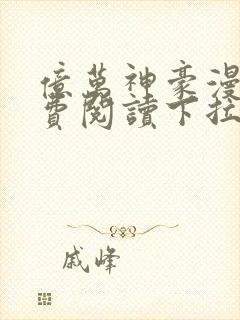 億萬神豪漫
費閱讀下拉
戚峰